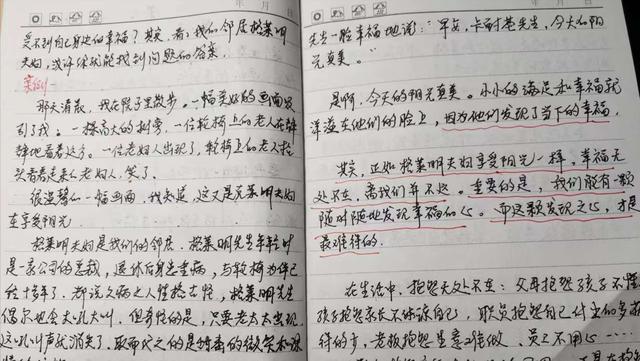 受不到自己身边的幸福？其实，看看我们的邻居格莱明
夫妇，或许你就能找到问题的答案。
案例
那天清晨，我在院子里散步。一幅美好的画面吸
引了我。一棵高大的树旁，一位轮椅上的老人在静
静地看着远方。一位老妇人出现了，轮椅上的老人抬
头看着走来的老妇人，笑了。
很温馨的一幅画面，我知道，这又是格莱明夫妇
在享受阳光
格莱明夫妇是我们的邻居。格莱明先生年轻时
是一家公司的总裁，退休后身患重病，与轮椅为伴已
经十多年了。都说久病之人性格古怪，格莱明先生
偶尔也会大吼大叫，但奇怪的是，只要老太太出现
这吼叫声就消失了，取而代之的是
先生一脸幸福地说：“早安，卡耐基先生，今天的阳
光真美。”
是啊，今天的阳光真美。小小的满足和幸福就
洋溢在他们的脸上，因为他们发现了当下的幸福，
其实，正如格莱明夫妇享受阳光一样，幸福无
处不在，离我们并不远。重要的是，我们能有一颗
随时随地发现幸福的心。而这颗发现之心，才是
最难得的。
在生活中，抱怨无处不在：父母抱怨孩子不懂
孩子抱怨家长不体谅自己，职员抱怨自己付出的多获
得的少，老板抱怨生意难做、员工不用心……